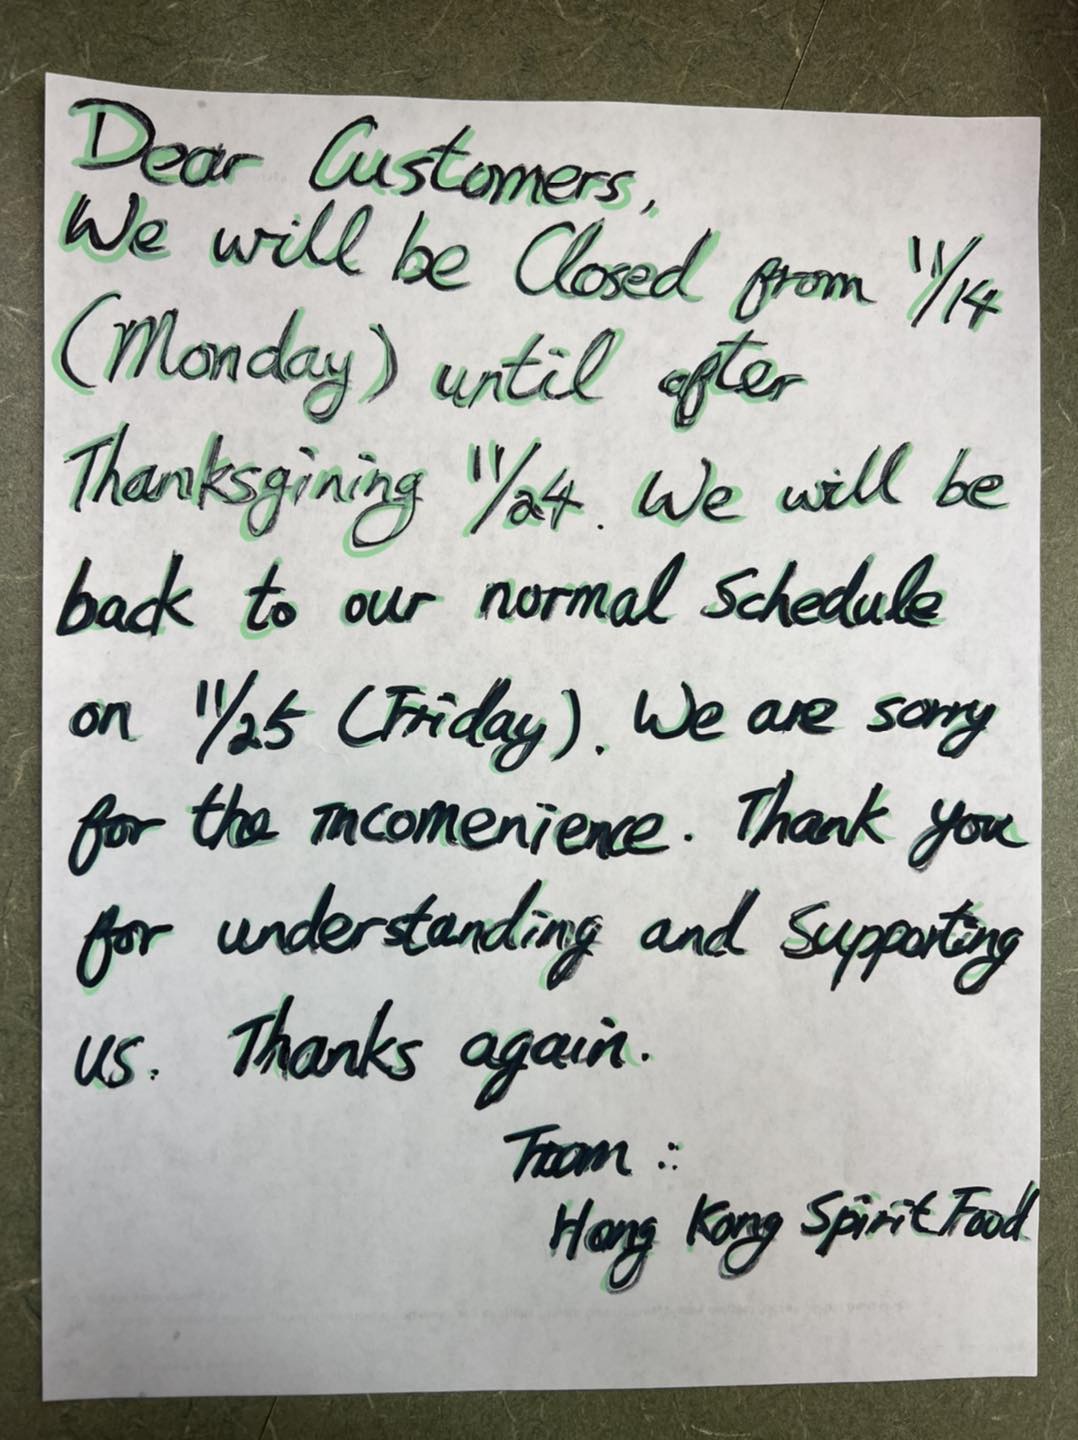 Dear Customers,
We will be Closed from 11/14
(Monday) until after
Thanksgining 11/24. We will be
back to our normal Schedule
on 11/25 (Friday). We are sorry
for the incomenience. Thank you
for understanding and Supporting
us. Thanks again.
From :
Hong Kong Spirit Food